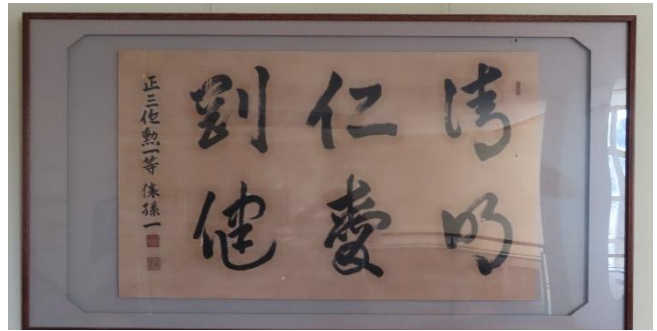 清明
仁愛
剛健
正三位勲一等 俵孫一